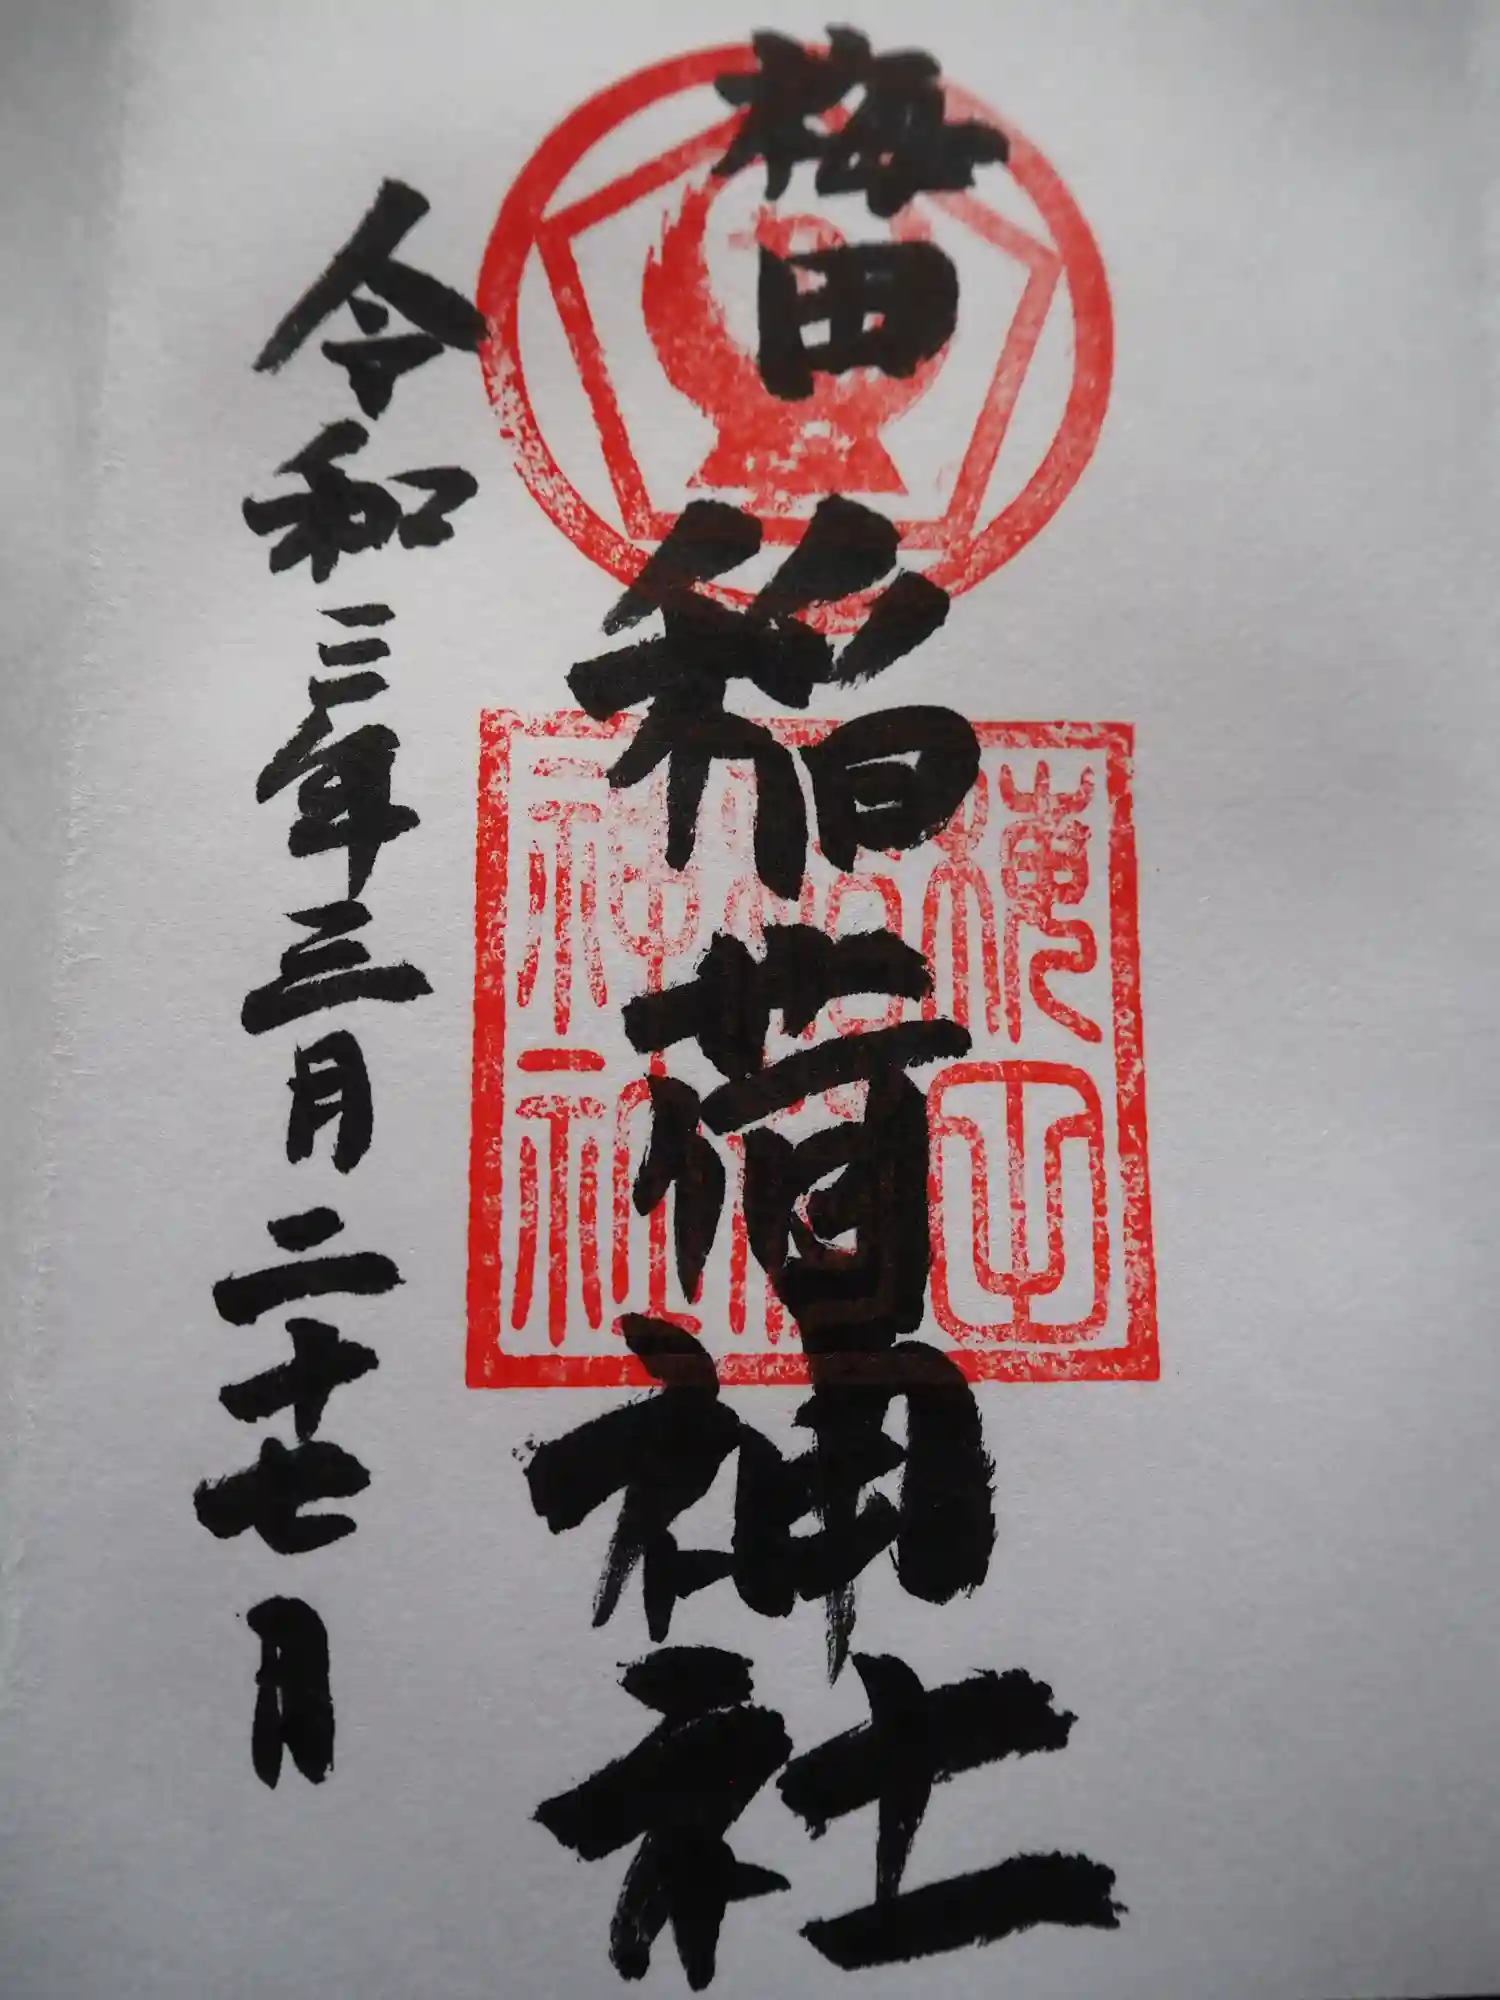 梅田
稲荷神社
令和三年三月二十七日
神社